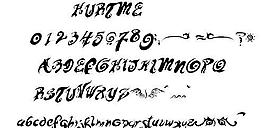 HURTME
0123456789:
ABCDEFGHIJKLMNOPQ
RSTUVWXYZ
abcdefghijklmnopqrstuvwxyz